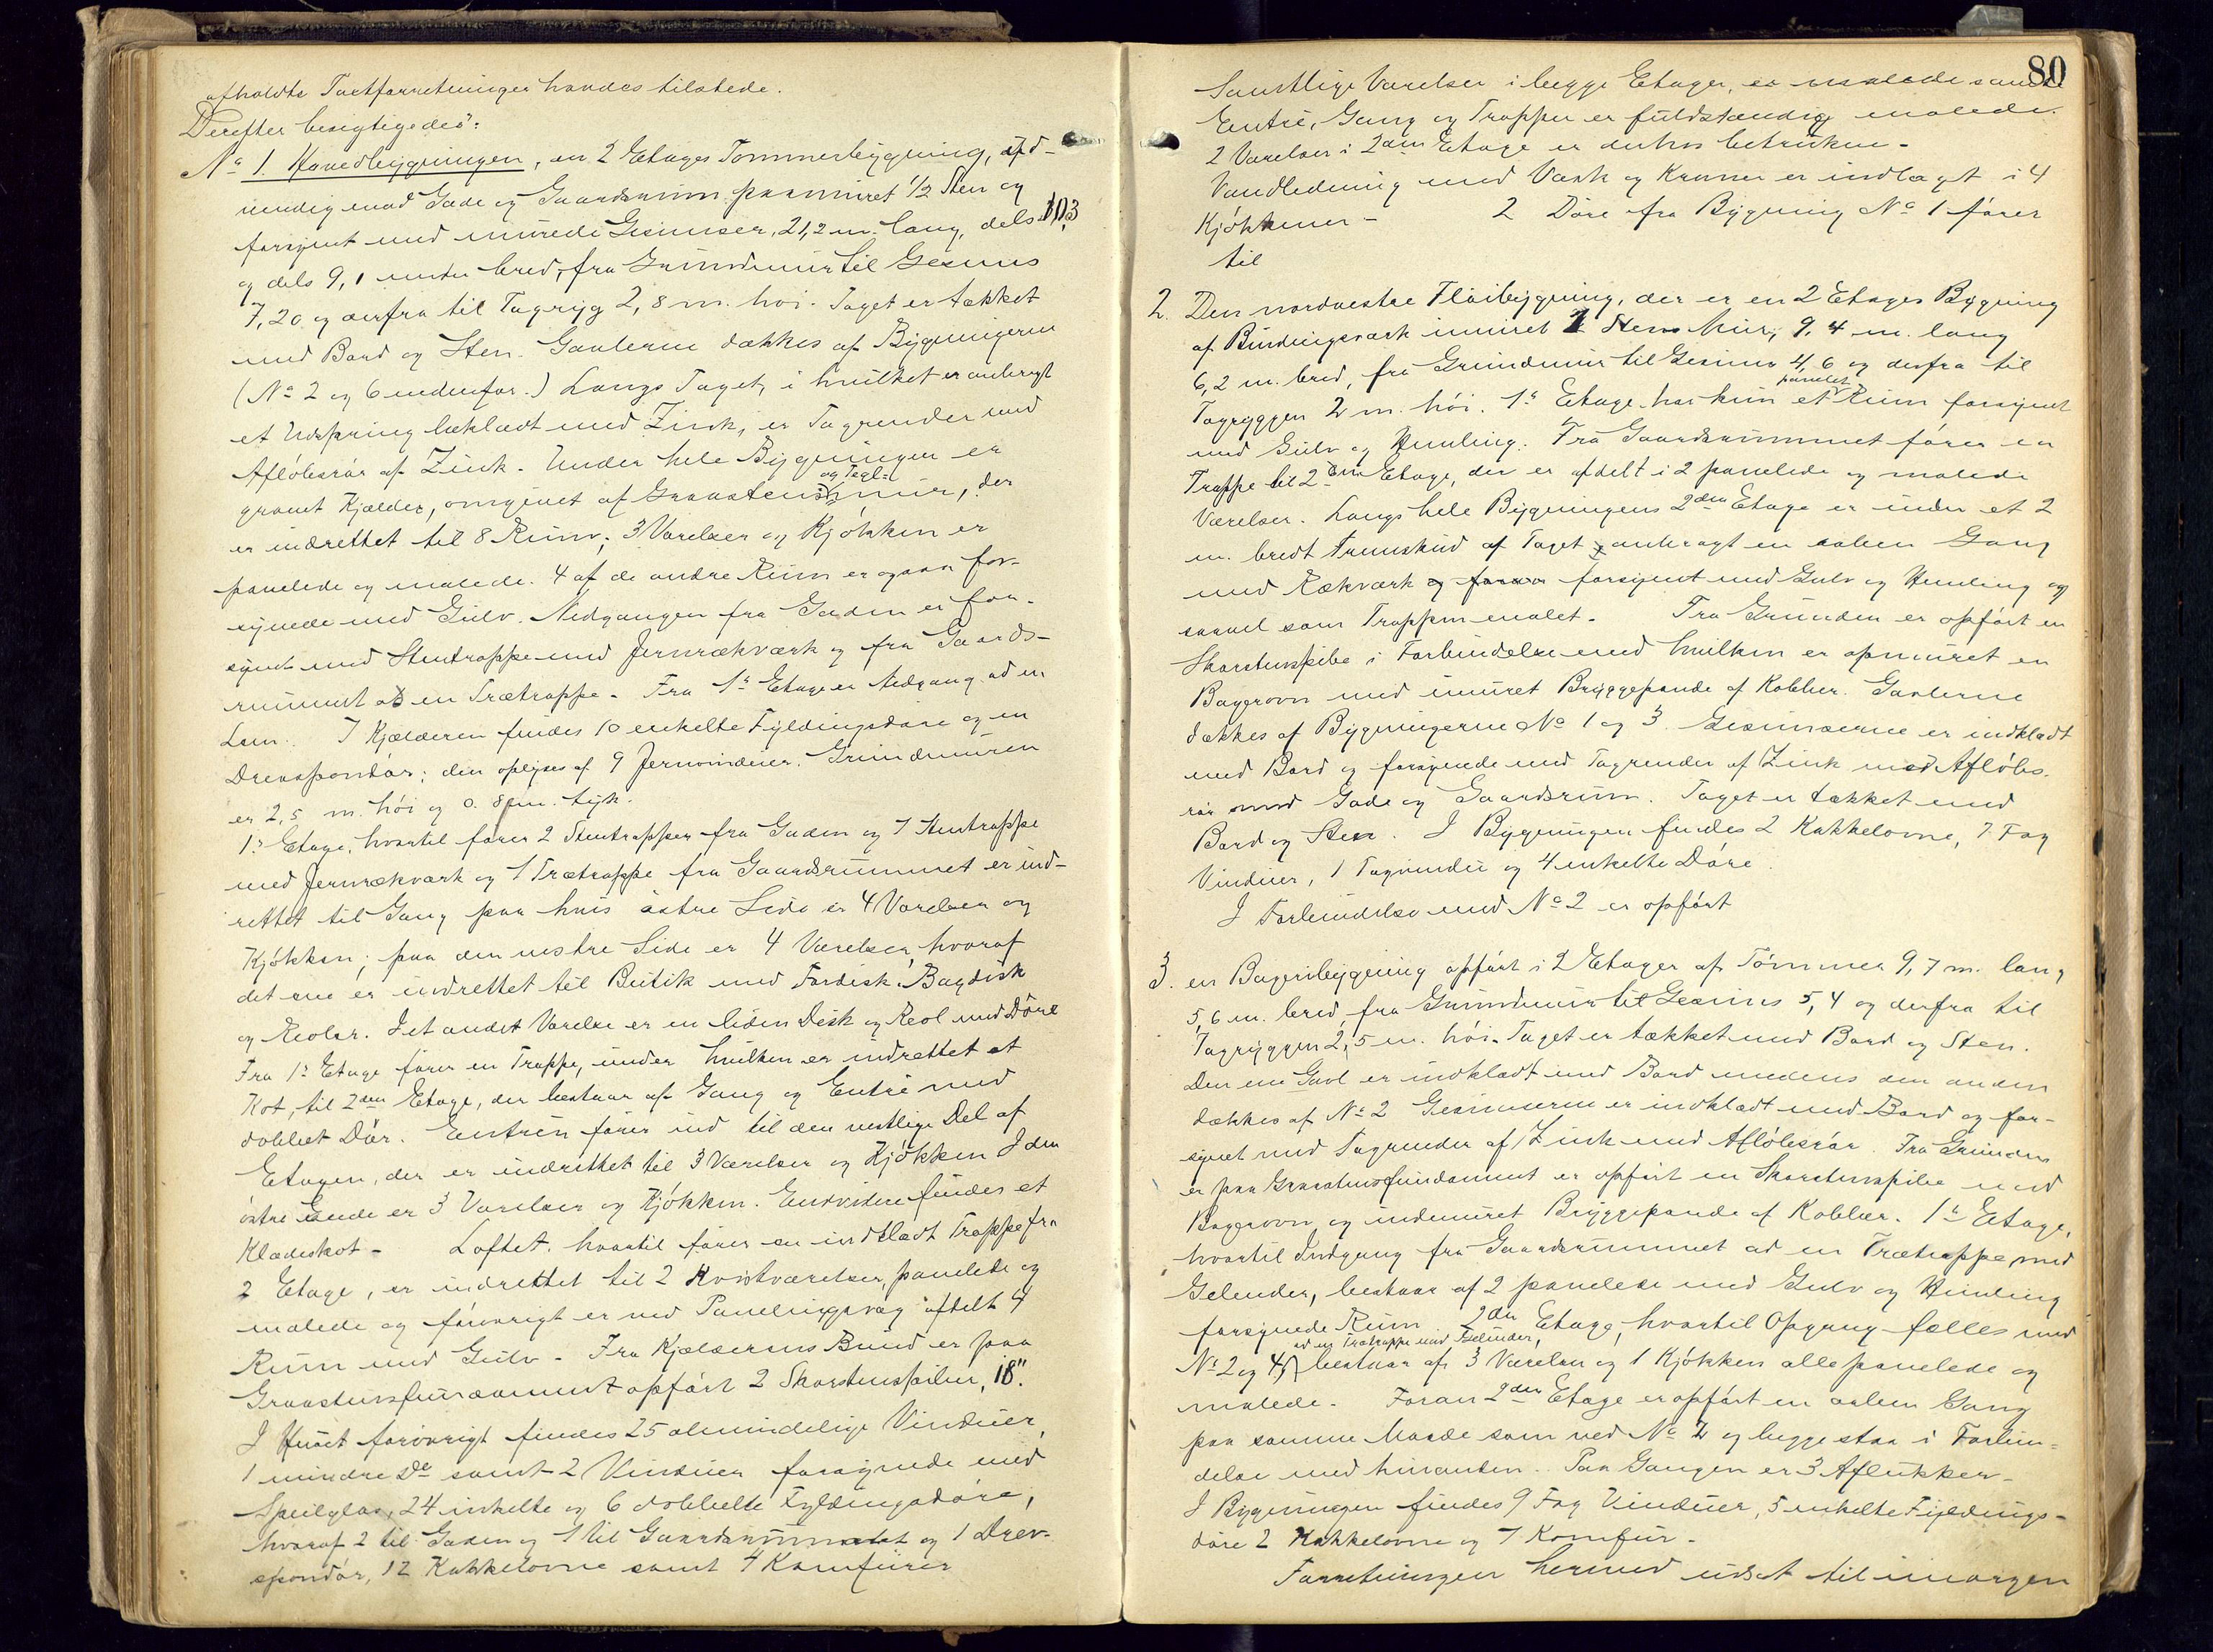 afholdte Taxtforretninger havdes tilstede.
Derefter besigtigedes:
No 1. Hovedbygningen, en 2 Etages Tømmerbygning, udv-
vendig mod Gade og Gaardsrum paamuret ½ Sten og
forsynet med murede Gesimser, 21,2 m. lang, dels 10,3
og dels 9,1 meter bred, fra Grundmur til Gesims
7,20 og derfra til Tagryg 2,8 m. høi. Taget er tækket
med Bord og Sten. Gavlerne dækkes af Bygningerne
(No 2 og 6 nedenfor.) Langs Taget, i hvilket er anbragt
et Udspring beklædt med Zink, er Tagrender med
Afløbsrør af Zink. Under hele Bygningen er
gravet Kjelder, omgivet af Graastens og Tegl-mur, der
er indrettet til 8 Rum; 3 Værelser og Kjøkken er
panelede og malede. 4 af de andre Rum er ogsaa for-
synede med Gulv. Nedgangen fra Gaden er for-
synet med Stentrappe med Jernrækværk og fra Gaards-
rummet ad en Trætrappe. Fra 1ste Etage er Nedgang ad en
Lem. I Kjælderen findes 10 enkelte Fyldingsdøre og en
Drevspondør; den oplyses af 9 Jernvinduer. Grundmuren
er 2,5 m. høi og 0.8 m. tyk.
1ste Etage, hvortil fører 2 Stentrapper fra Gaden og 1 Stentrappe
med Jernrækværk og 1 Trætrappe fra Gaardsrummet er ind-
rettet til Gang paa hvis østre Side er 4 Værelser og
Kjøkken; paa den vestre Side er 4 Værelser, hvoraf
det ene er indrettet til Butik med Fordisk, Bagdisk
og Reoler. I et andet Værelse er en liden Disk og Reol med Døre
Fra 1ste Etage fører en Trappe, under hvilken er indrettet et
Kot, til 2den Etage, der bestaar af Gang og Entré med
dobbet Dør. Entréen fører ind til den vestlige Del af
Etagen, der er indrettet til 3 Værelser og Kjøkken I den
østre Ende er 3 Værelser og Kjøkken. Endvidere findes et
Klædeskot - Loftet, hvortil fører en indklædt Trappe fra
2 Etage, er indrettet til 2 Kvistværelser, panelede og
malede og forøvrigt er ved Panelingsvæg afdelt 4
Rum med Gulv - Fra Kjælderens Bund er paa
Graastensfundament opført 2 Skorstenspiber, 18".
I Huset forøvrigt findes 25 almindelige Vinduer,
1 mindre Do samt 2 Vinduer forsynede med
Speilglas, 24 enkelte og 6 dobbelte Fyldingsdøre,
hvoraf 2 til Gaden og 1 til Gaardsrummet og 1 Drev-
spondør, 12 Kakkelovne samt 4 Komfurer
80
Samtlige Værelser i begge Etager, er malede samt
Entré, Gang og Trapper er fuldstændig malede.
2 Værelser i 2den Etage er derhos betrukne -
Vandledning med Vask og Kraner er indlagt i 4
Kjøkkener - 2 Døre fra Bygning No 1 fører
til
2. Den nordvestre Fløibygning, der er en 2 Etages Bygning
af Bindingsværk inmuret 1 Stens Mur, 9,4 m. lang
6,2 m. bred, fra Grundmur til Gesims 4,6 og derfra til
Tagryggen 2 m. høi. 1ste Etage har kun et panelet Rum forsynet
med Gulv og Himling. Fra Gaardsrummet fører en
Trappe til 2den Etage, der er afdelt i 2 panelede og malede
Værelser. Langs hele Bygningens 2den Etage er under et 2
m. bredt Fremskud af Taget anbragt en aaben Gang
med Rækværk og forsynet med Gulv og Himling og
saavel som Trappen malet. Fra Grunden er opført en
Skorstenspibe i Forbindelse med hvilken er opmuret en
Bagerovn med imuret Bryggepande af Kobber. Gavlerne
dækkes af Bygningerne No 1 og 3 Gesimserne er indklædt
med Bord og forsynede med Tagrender af Zink med Afløbs-
rør mod Gade og Gaardsrum. Taget er tækket med
Bord og Sten. I Bygningen findes 2 Kakkelovne, 7 Fag
Vinduer, 1 Tagvindu og 4 enkelte Døre.
I Forbindelse med No 2 er opført
3. en Bageribygning opført i 2 Etager af Tømmer 9,7 m. lang
5,6 m. bred, fra Grundmur til Gesims 5,4 og derfra til
Tagryggen 2,5 m. høi. Taget er tækket med Bord og Sten.
Den ene Gavl er indklædt med Bord medens den anden
dækkes af No 2 Gesimserne er indklædt med Bord og for-
synet med Tagrender af Zink med Afløbsrør. Fra Grunden
er paa Graastensfundament er opført en Skorstenspibe med
Bagerovn og indmuret Bryggepande af Kobber. 1ste Etage,
hvortil Indgang fra Gaardsrummet ad en Trætrappe med
Gelender, bestaar af 2 panelede med Gulv og Himling
forsynede Rum 2den Etage, hvortil Opgang fælles med
ad en Trætrappe med Gelender,
No 2 og 4, bestaar af 3 Værelser og 1 Kjøkken alle panelede og
malede. Foran 2den Etage er opført en aaben Gang
paa samme Maade som ved No 2 og begge staa i Forbin-
delse med hinanden. Paa Gangen er 3 Aflukker -
I Bygningen findes 9 Fag Vinduer, 5 enkelte Fyldings-
døre 2 Kakkelovne og 1 Komfur -
Forretningen hermed udsat til imorgen